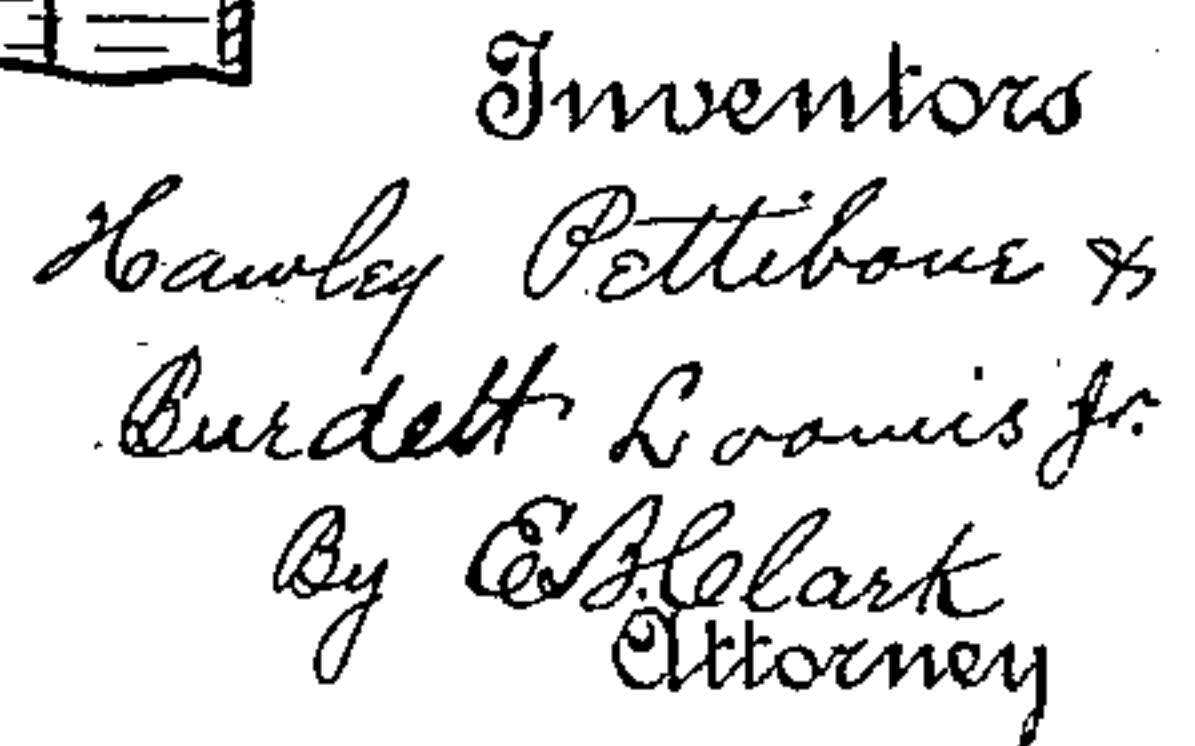 Inventors
Hawley Pettibone &
Burdett Loomis Jr.
By E. B. Clark
Attorney